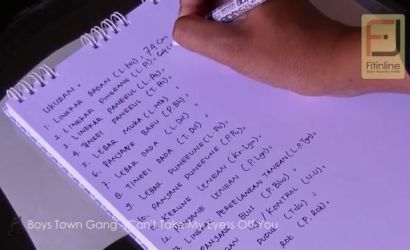 Fitinline
UKURAN.
1. LINGKAR BADAN (L.bd). 74 cm
2. LINGKAR PINGGANG (L.Pi). 64
3. LINGKAR PANGGUL (L.Pa).
4. TINGGI PANGGUL (T.Pa).
5. LEBAR MUKA (L.MK)
6. PANJANG BAHU (P.Bh)
7. LEBAR DADA (L.Dd)
8. TINGGI DADA (T.Dd)
9. LEBAR PUNGGUNG (L.Pu)
10. PANJANG PUNGGUNG (P.Pu).
KERUNG LENGAN (K.Lgn).
PANJANG LENGAN (P.Lgn).
13. LINGKAR PERGELANGAN TANGAN (L.P.Tgn).
PANJANG BLUS (P.Blu)
KONTROL (U.U)
(T.Du)
PANJANG ROK (P.Rok)
Boys Town Gang - Can't Take My Eyess Off You